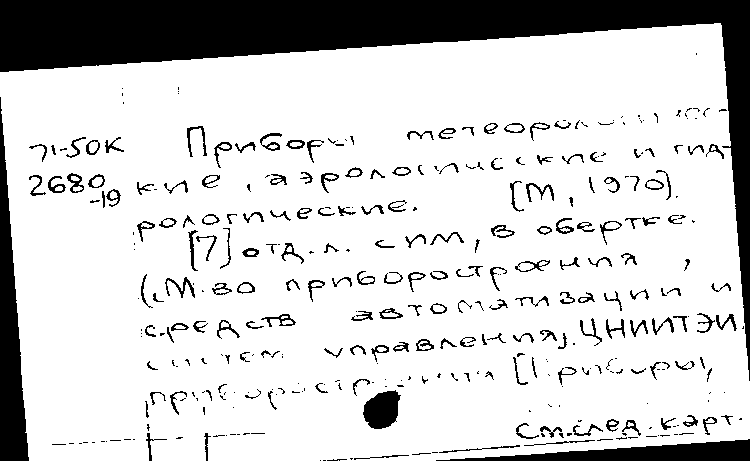 71-50К Приборы метеорологичес-
2680-19 кие, аэрологические и гид-
рологические. [М, 1970].
[7] отд. л. с илл, в обертке.
(М-во приборостроения,
средств автоматизации и
систем управления). ЦНИИТЭИ
приборостроения [Приборы,
См. след. карт.